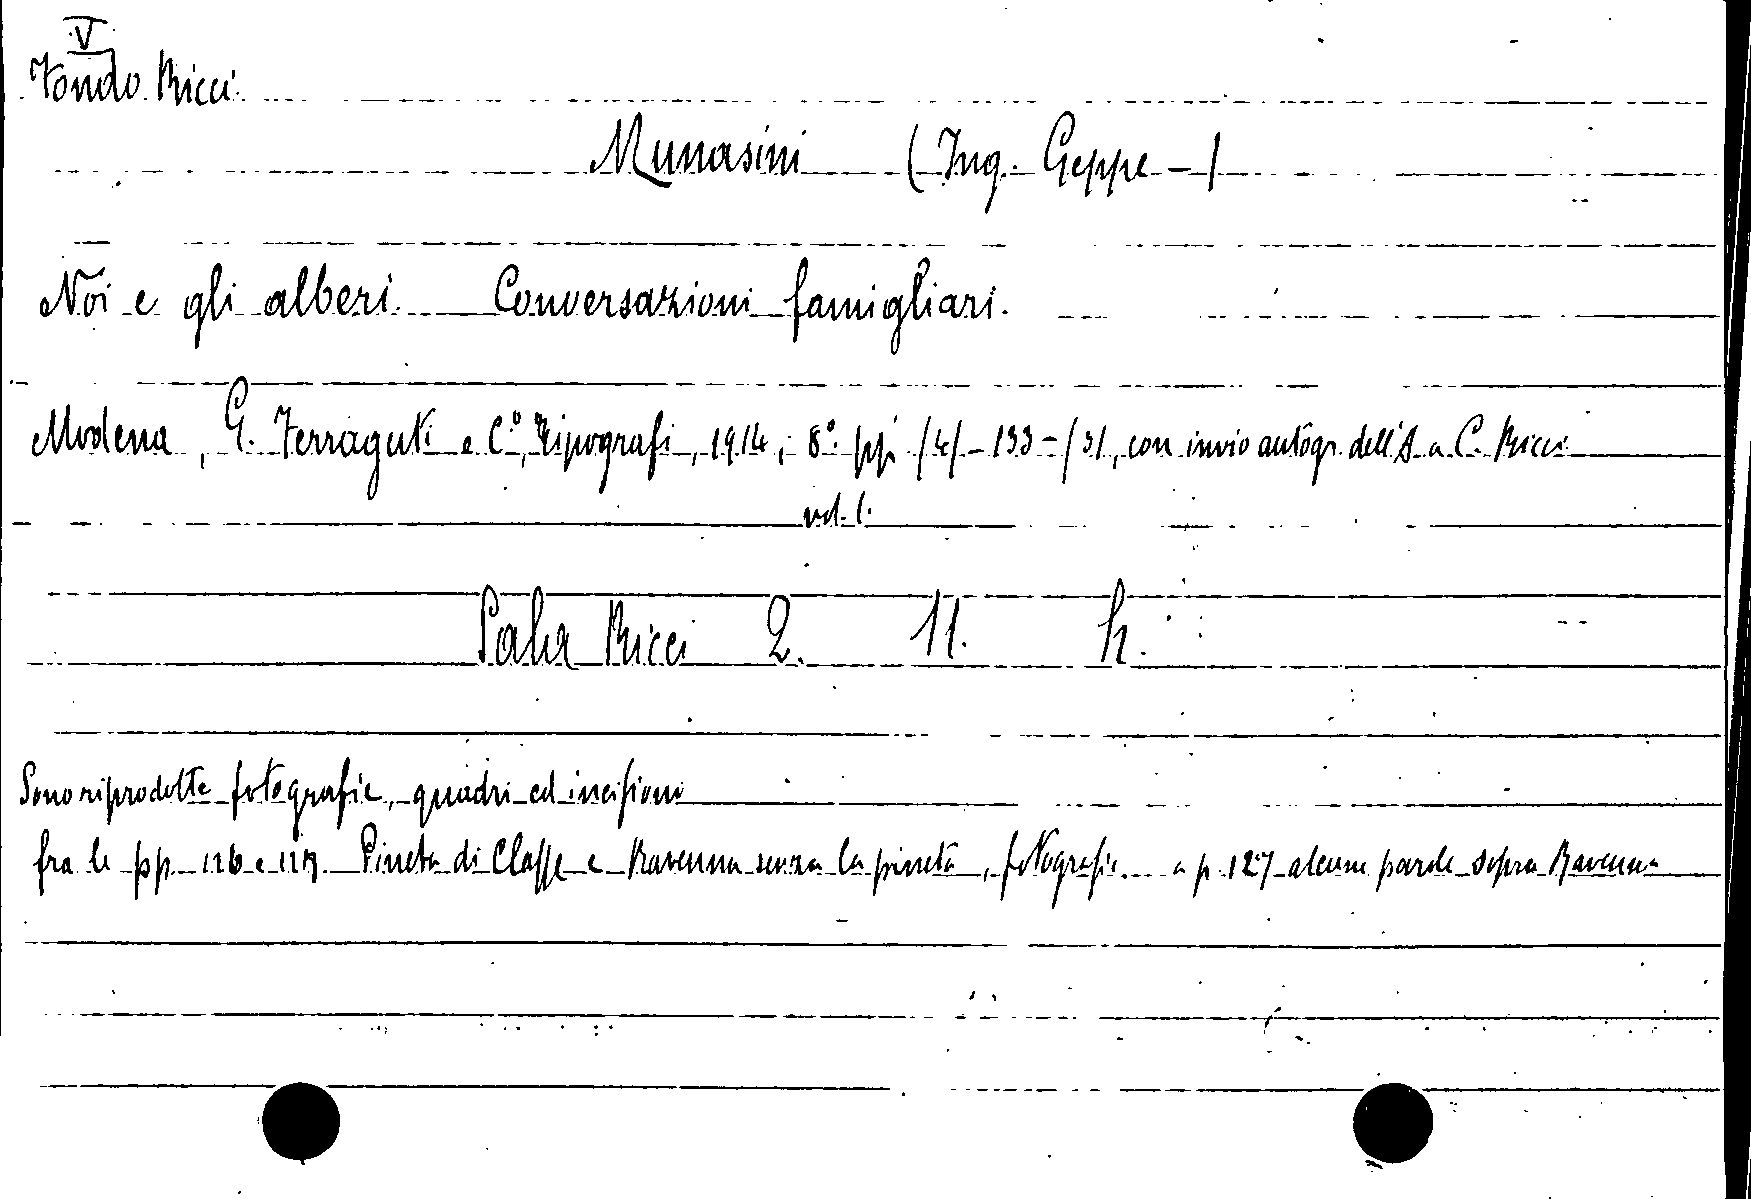 V
Fondo Ricci
Munasini (Ing. Geppe -)
Noi e gli alberi. Conversazioni famigliari.
Modena, G. Ferraguti e C.º, Tipografi, 1914, 8º. pp. /4/ - 133 - /3/, con invio autogr. dell'A. a C. Ricci
vol. 1.
Sala Ricci 2. 11. h.
Sono riprodotte fotografie, quadri ed incisioni
fra le pp. 126 e 127. Pineta di Classe e Ravenna senza la pineta, fotografie. a p. 127 alcune parole sopra Ravenna